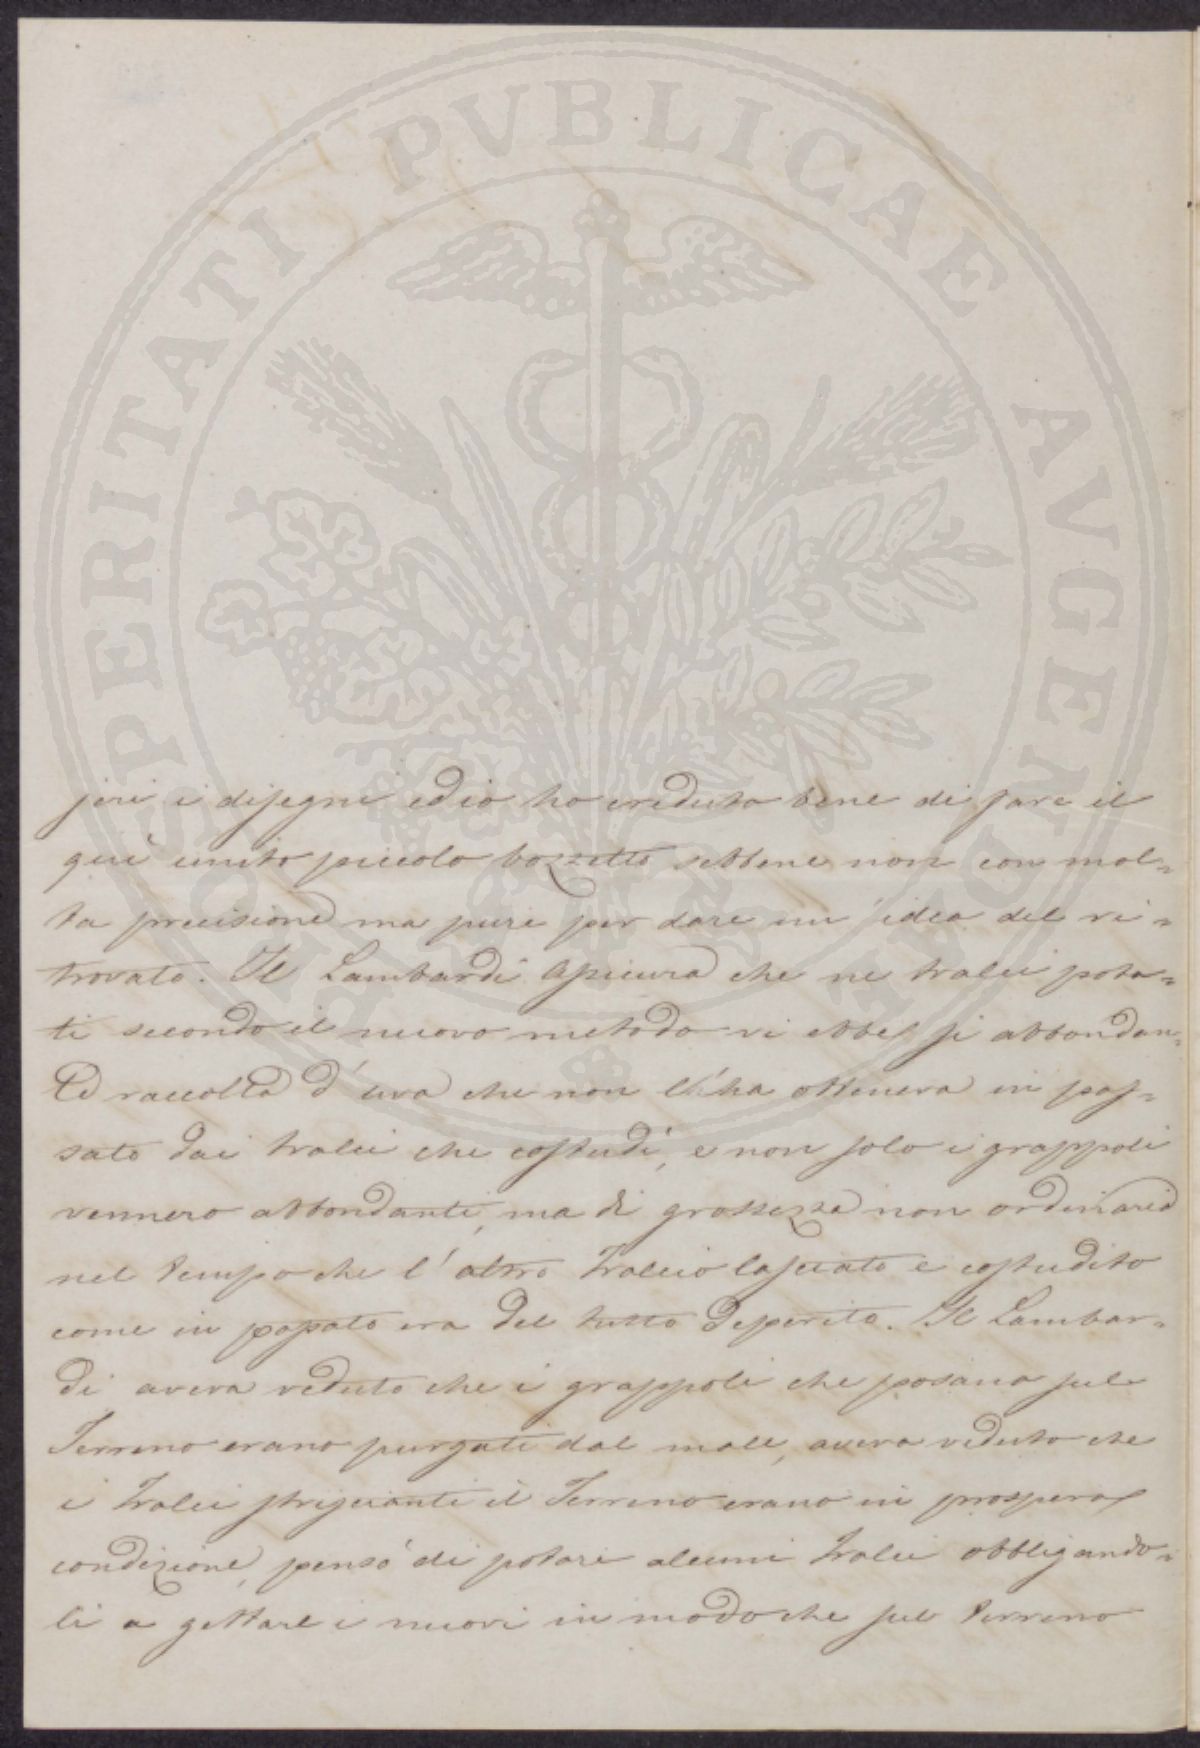 PROSPERITATI PVBLICAE AVGENDAE
jeri i disegni ed io ho creduto bene di fare il
quì unito piccolo bozzetto sebbene non con mol=
ta precisione ma pure per dare un'idea del ri=
trovato. Il Lambardi assicura che ne tralci pota=
ti secondo il nuovo metodo vi ebbe sì abbondan=
te raccolta d'uva che non l'ha ottenuta in pas=
sato dai tralci che costudì, e non solo i grappoli
vennero abbondanti, ma di grossezza non ordinaria
nel tempo che l'altro tralcio lasciato e costudito
come in passato era del tutto deperito. Il Lambar=
di aveva veduto che i grappoli che posano sul
Terreno erano purgati dal male, aveva veduto che
i tralci striscianti il Terreno erano in prospera
condizione, pensò di potare alcuni tralci obbligando=
li a gettare i nuovi in modo che sul terreno